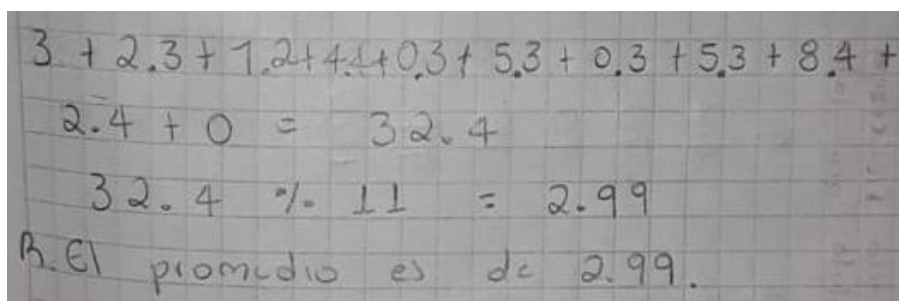 3 + 2.3 + 1.2 + 4.1 + 0.3 + 5.3 + 0.3 + 5.3 + 8.4 +
2.4 + 0 = 32.4
32.4 % 11 = 2.99
R. El promedio es de 2.99.